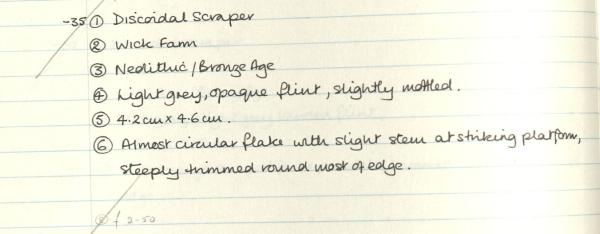 -35 ① Discoidal Scraper
② Wick Farm
③ Neolithic/Bronze Age
④ Light grey, opaque flint, slightly mottled.
⑤ 4.2cm x 4.6cm.
⑥ Almost circular flake with slight stem at striking platform,
steeply trimmed round most of edge.
⑧ £ 2-50